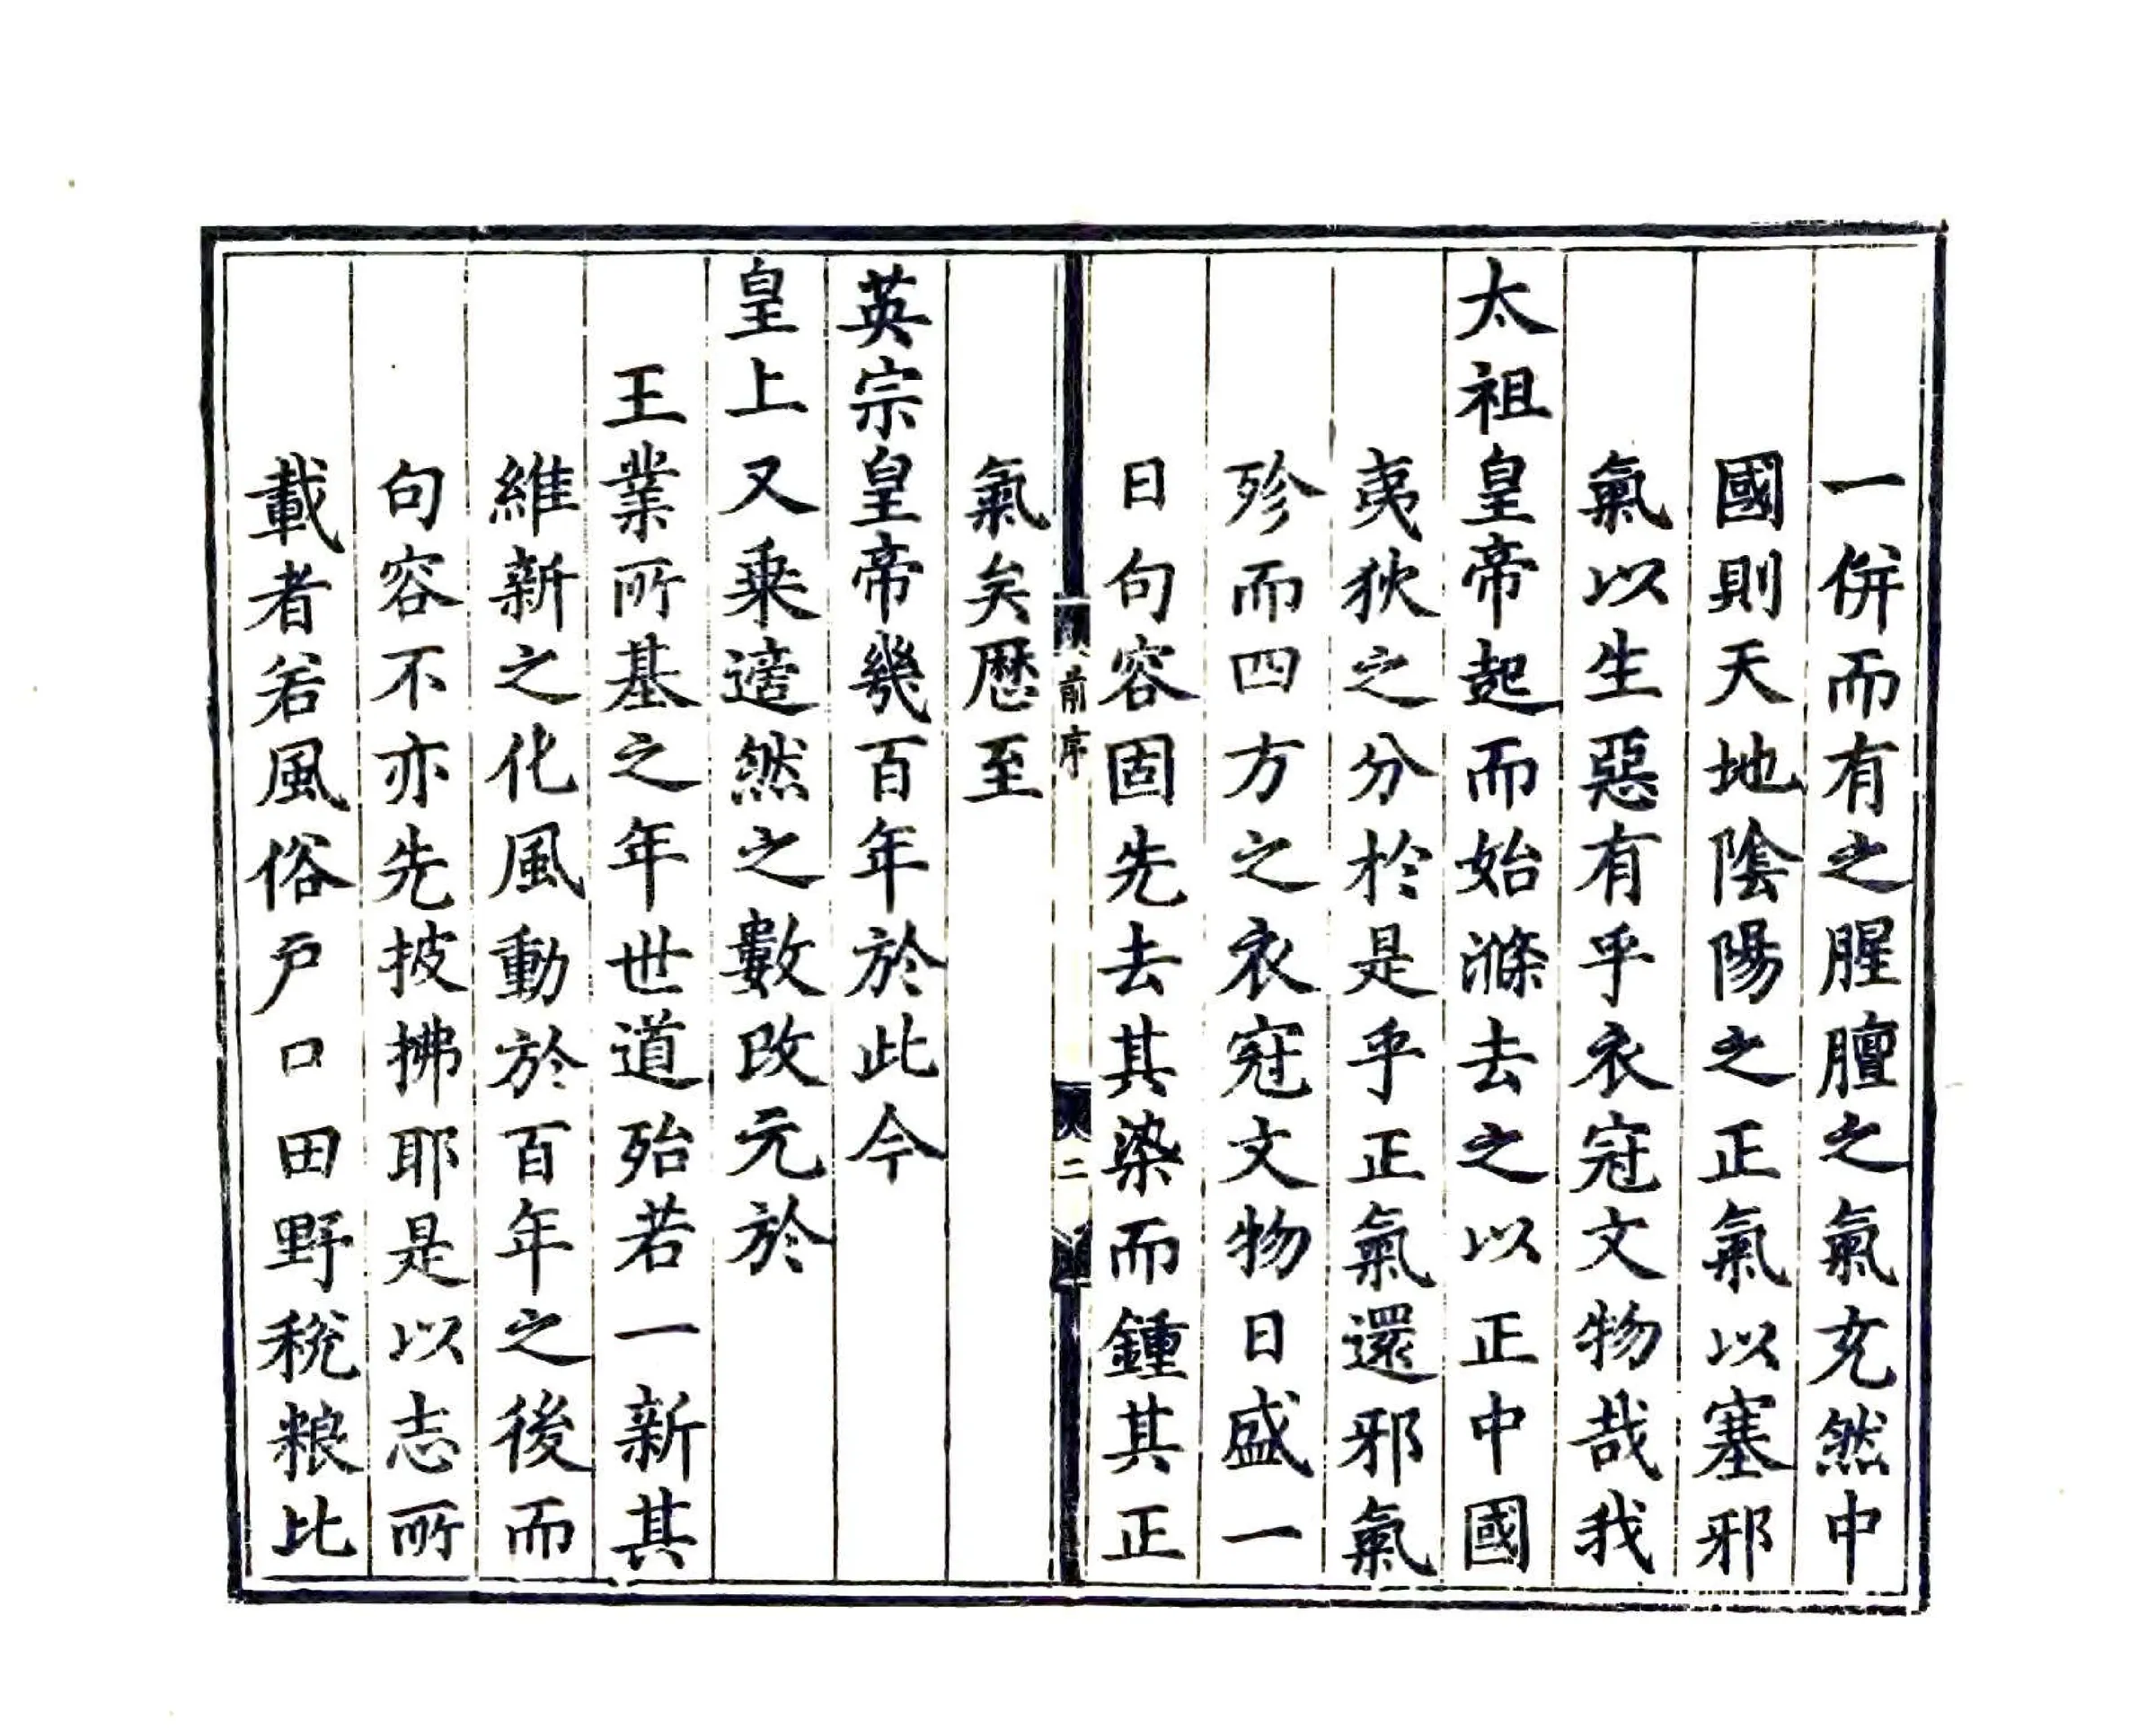 一併而有之腥膻之氣充然中
國則天地陰陽之正氣以塞邪
氣以生惡有乎衣冠文物哉我
太祖皇帝起而始滌去之以正中國
夷狄之分於是乎正氣還邪氣
殄而四方之衣冠文物日盛一
日句容固先去其染而鍾其正
前序
二
氣矣歷至
英宗皇帝幾百年於此今
皇上又乘適然之數改元於
王業所基之年世道殆若一新其
維新之化風動於百年之後而
句容不亦先披拂耶是以志所
載者若風俗戶口田野稅粮比